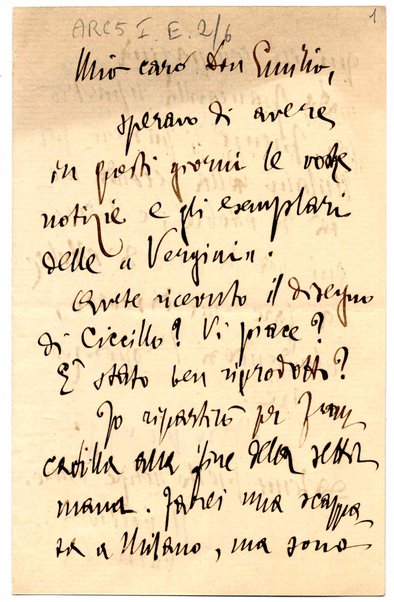 ARC5 I. E. 2/6
1
Mio caro Don Emilio,
speravo di avere
in questi giorni le vostre
notizie e gli esemplari
delle "Vergini".
Avete ricevuto il disegno
di Ciccillo? Vi piace?
E' stato ben riprodotto?
Io ripartirò per Fran
cavilla alla fine della setti
mana. Farei una scappa
ta a Milano, ma sono